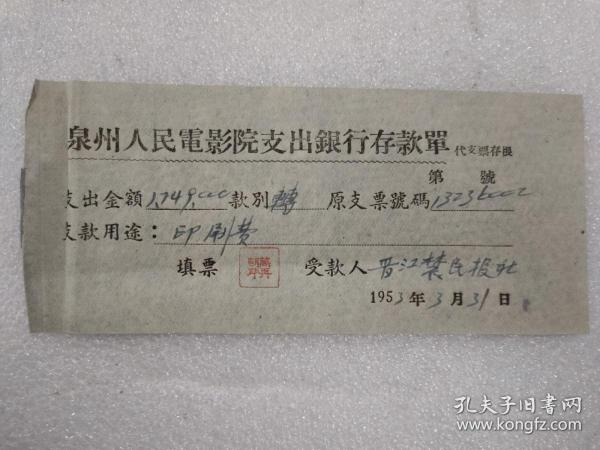 泉州人民電影院支出銀行存款單 代支票存根
第 號
支出金額 1,749,000 款別 轉 原支票號碼 13236002
支款用途：印刷费
填票 受款人 晋江 民报社
1953年3月31日
孔夫子旧书网
www.kongfz.com